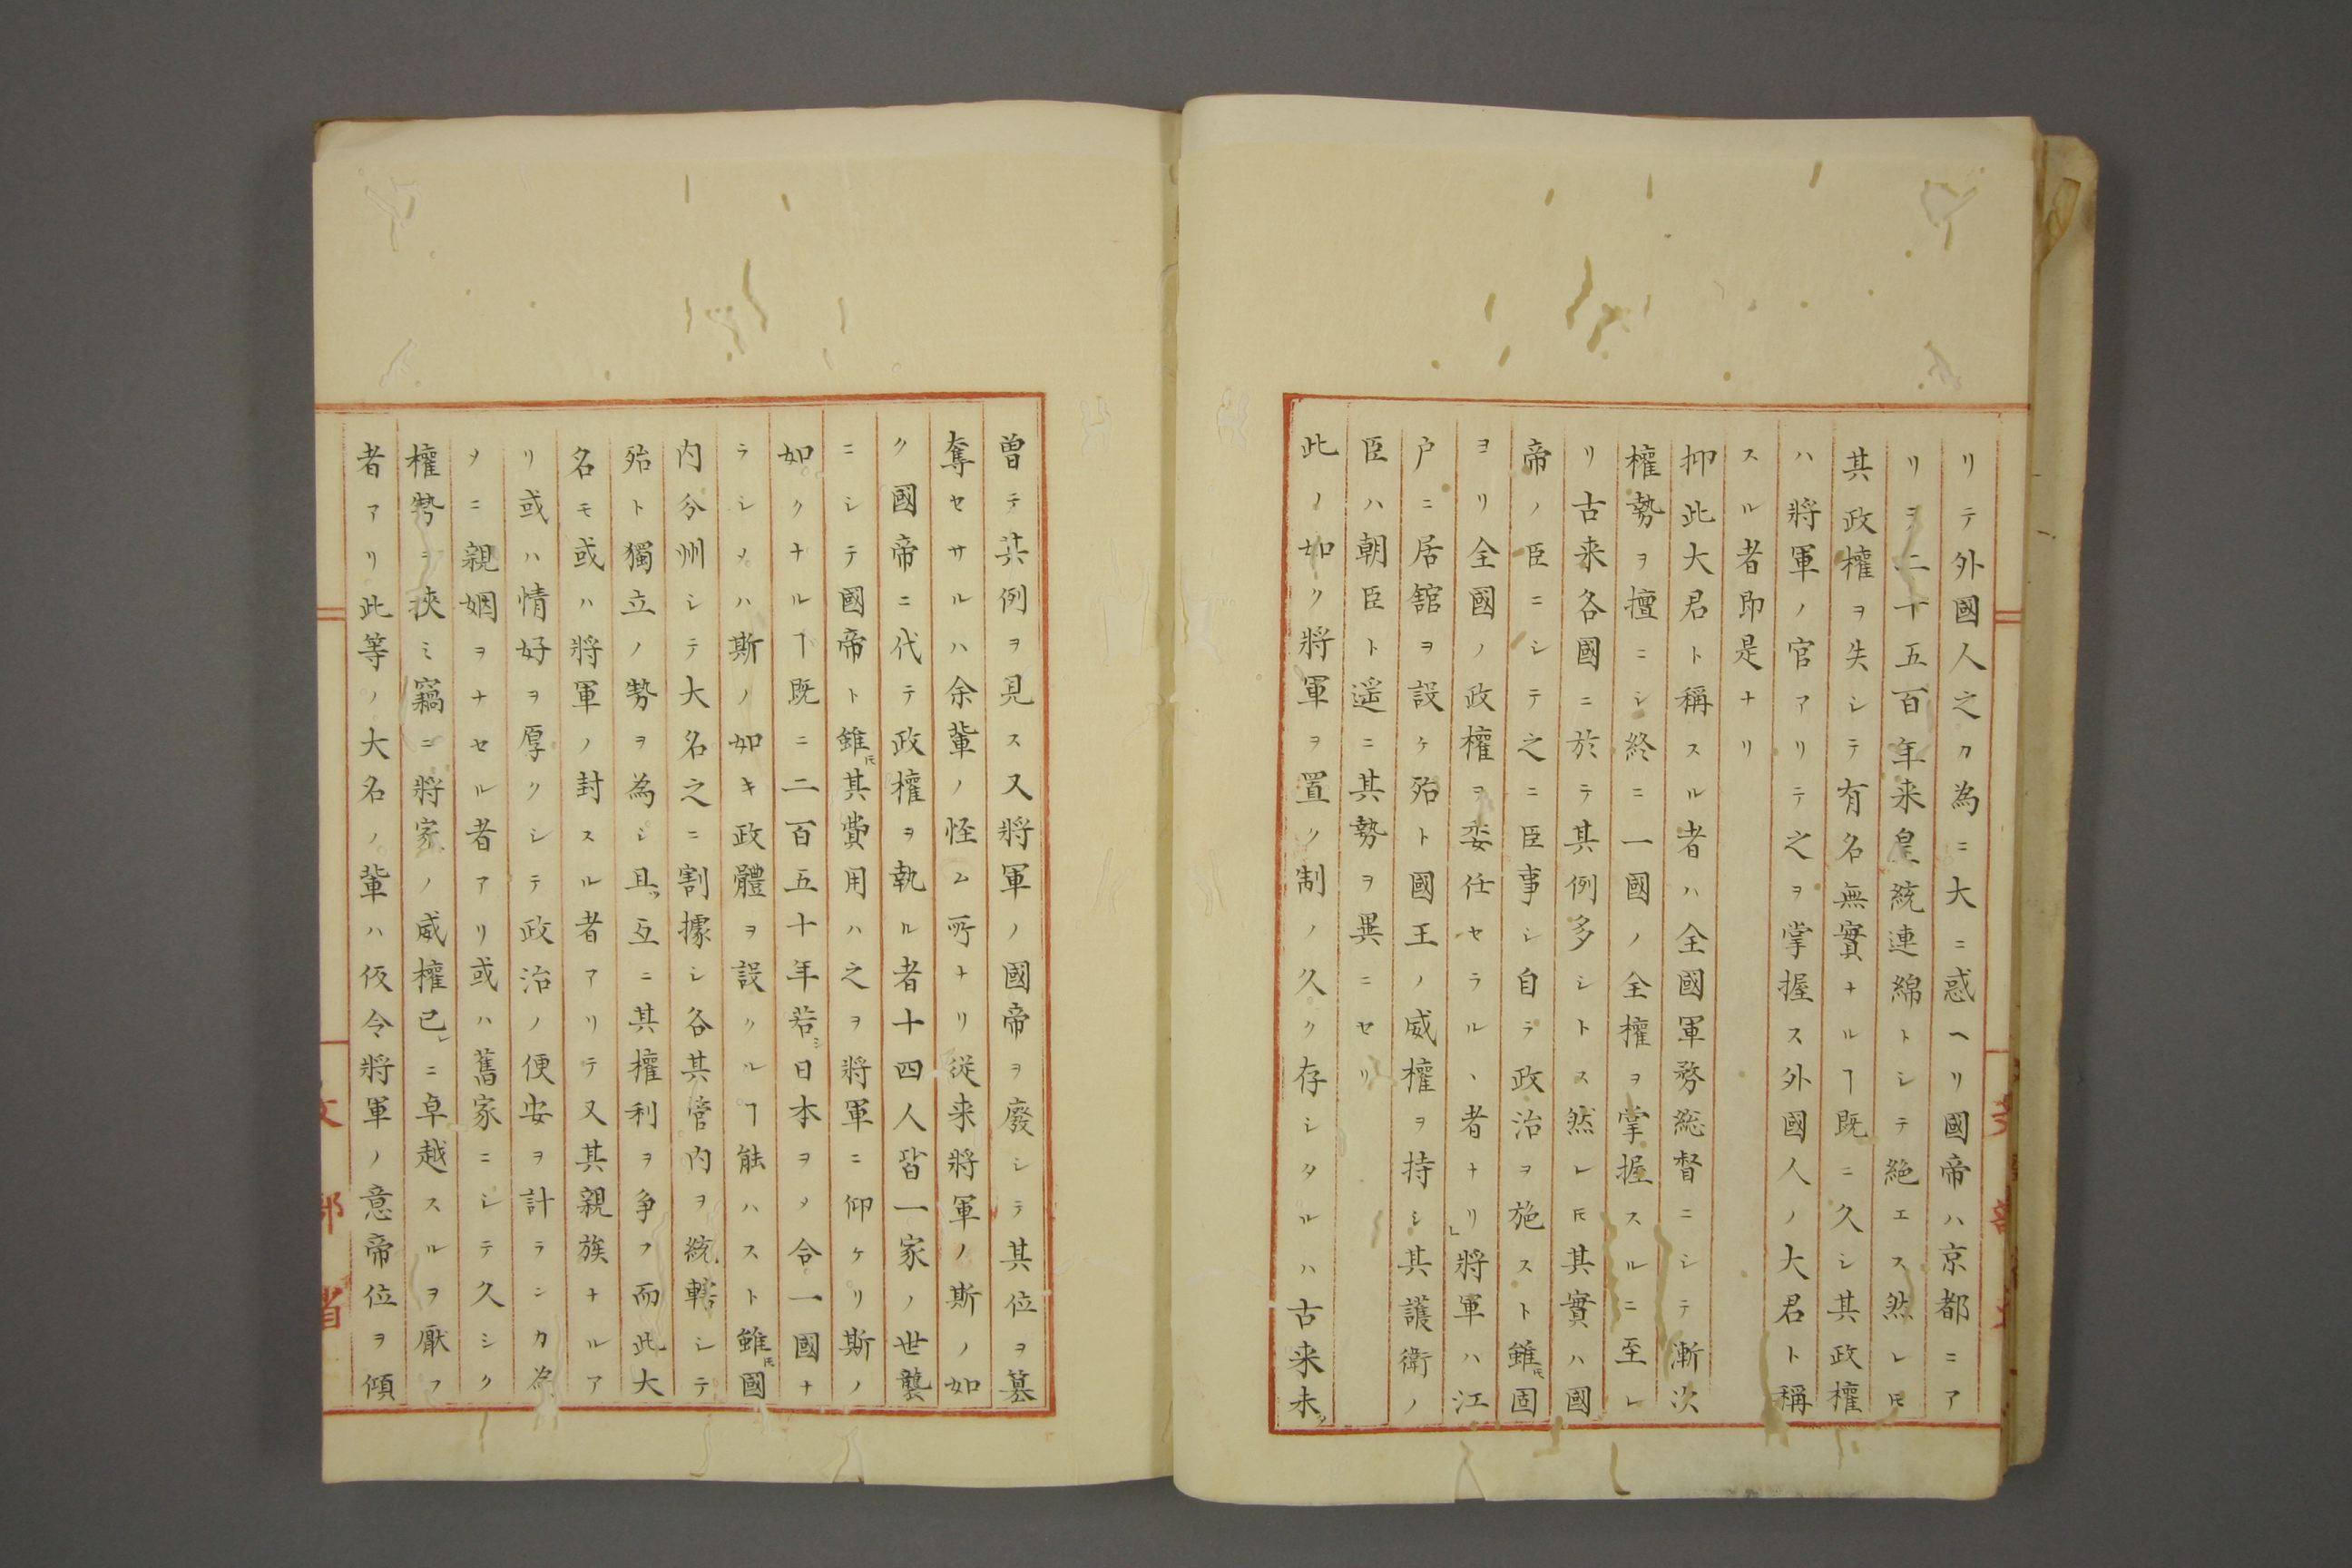 リテ外國人之カ為ニ大ニ惑ヘリ國帝ハ京都ニア
リヲ二千五百年来皇統連綿トシテ絶エス然レ𪜈
其政權ヲ失シテ有名無實ナルヿ既ニ久シ其政權
ハ將軍ノ官アリテ之ヲ掌握ス外國人ノ大君ト稱
スル者即是ナリ
抑此大君ト稱スル者ハ全國軍務総督ニシテ漸次
權勢ヲ擅ニシ終ニ一國ノ全權ヲ掌握スルニ至レ
リ古来各國ニ於テ其例多シトス然レ𪜈其實ハ國
帝ノ臣ニシテ之ニ臣事シ自ラ政治ヲ施スト雖𪜈固
ヨリ全國ノ政權ヲ委任セラルヽ者ナリ」將軍ハ江
戸ニ居舘ヲ設ケ殆ト國王ノ威權ヲ持シ其護衛ノ
臣ハ朝臣ト遥ニ其勢ヲ異ニセリ
此ノ如ク將軍ヲ置ク制ノ久ク存シタルハ古来未タ
曽テ其例ヲ見ス又將軍ノ國帝ヲ廢シテ其位ヲ篡
奪セサルハ余輩ノ怪ム所ナリ從来將軍ノ斯ノ如
ク國帝ニ代テ政權ヲ執ル者十四人皆一家ノ世襲
ニシテ國帝ト雖𪜈其費用ハ之ヲ將軍ニ仰ケリ斯ノ
如クナルヿ既ニ二百五十年若シ日本ヲメ合一國ナ
ラシメハ斯ノ如キ政體ヲ設クルヿ能ハスト雖𪜈國
内分州シテ大名之ニ割據シ各其管内ヲ統轄シテ
殆ト獨立ノ勢ヲ為シ且ツ互ニ其權利ヲ争フ而此大
名モ或ハ將軍ノ封スル者アリテ又其親族ナルア
リ或ハ情好ヲ厚クシテ政治ノ便安ヲ計ランカ為
メニ親姻ヲナセル者アリ或ハ舊家ニシテ久シク
權勢ヲ挾ミ竊ニ將家ノ威權己レニ卓越スルヲ厭フ
者アリ此等ノ大名ノ輩ハ仮令將軍ノ意帝位ヲ傾
文部省